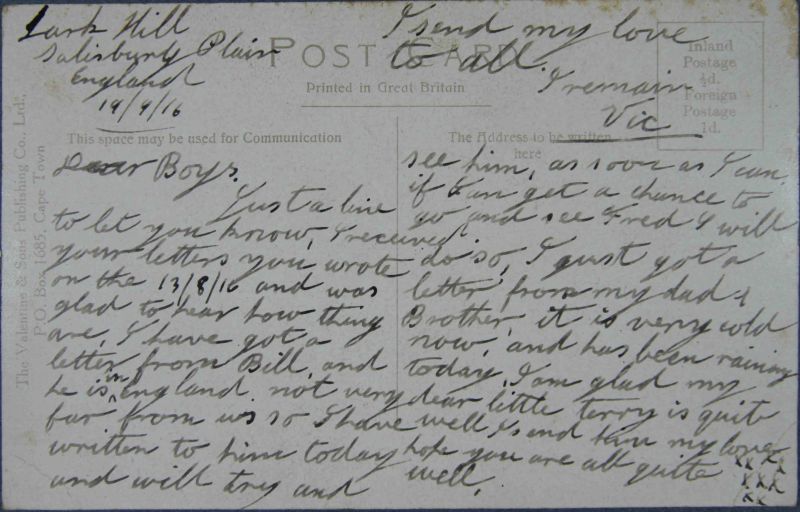 Lark Hill
Salisbury Plain
England
19/9/16
POST CARD
Printed in Great Britain
Inland
Postage
½d.
Foreign
Postage
1d.
The Valentine & Sons Publishing Co., Ltd.,
P.O. Box 1685, Cape Town
This space may be used for Communication
The Address to be written
here
Dear Boys.
Just a line
to let you know, I received
your letters you wrote
on the 13/8/16 and was
glad to hear how thing
are, I have got a
letter from Bill, and
he is in England not very
far from us so I have
written to him today
and will try and
see him, as soon as I can,
if I can get a chance to
go and see Fred I will
do so, I just got a
letter from my dad &
Brother, it is very cold
now, and has been raining
today, I am glad my
dear little terry is quite
well I send him my love
hope you are all quite
well.
xx xx
xxx
xx
I send my love
to all.
I remain
Vic